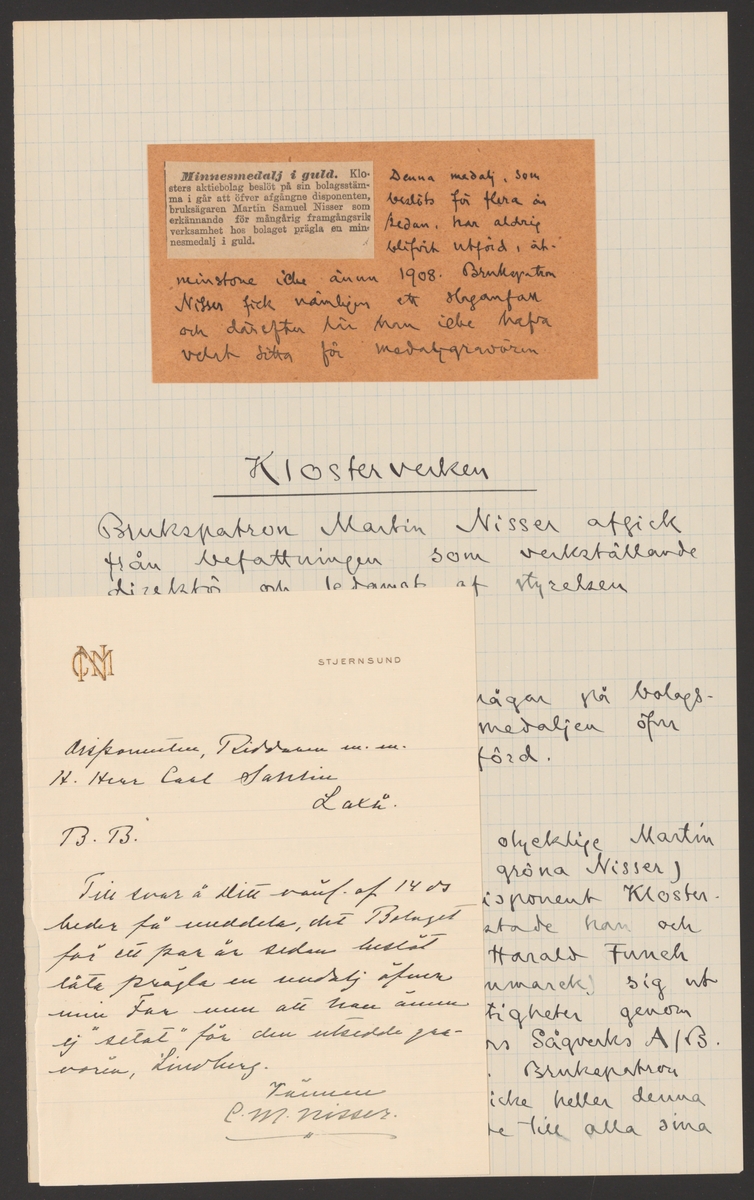 Minnesmedalj i guld. Klo-
sters aktiebolag beslöt på sin bolagsstäm-
ma i går att öfver afgångne disponenten,
bruksägaren Martin Samuel Nisser som
erkännande för mångårig framgångsrik
verksamhet hos bolaget prägla en min-
nesmedalj i guld.
Denna medalj, som
beslöts för flera år
sedan, har aldrig
blifvit utförd, åt-
minstone icke ännu 1908. Brukspatron
Nisser fick nämligen ett slaganfall
och därefter lär han icke hafva
velat sitta för medaljgravören
Klosterverken
Brukspatron Martin Nisser afgick
från befattningen som verkställande
direktör och ledamot af styrelsen
på bolags-
medaljen öfver
förd.
olycklige Martin
gröna Nisser)
isponent Kloster-
stade han och
Harald Funch
nmarck) sig ut
tigheter genom
ors Sågverks A/B.
Brukspatron
icke heller denna
te till alla sina
CMN
STJERNSUND
Disponenten, Riddaren m. m.
H. Herr Carl Sahlin
Laxå.
B. B.
Till svar å Ditt vänl. af 14 ds
beder få meddela, det Bolaget
för ett par år sedan beslöt
låta prägla en medalj öfver
min Far men att han ännu
ej "setat" för den utsedde gra-
vören, Lindberg.
Vännen
C. M. Nisser.